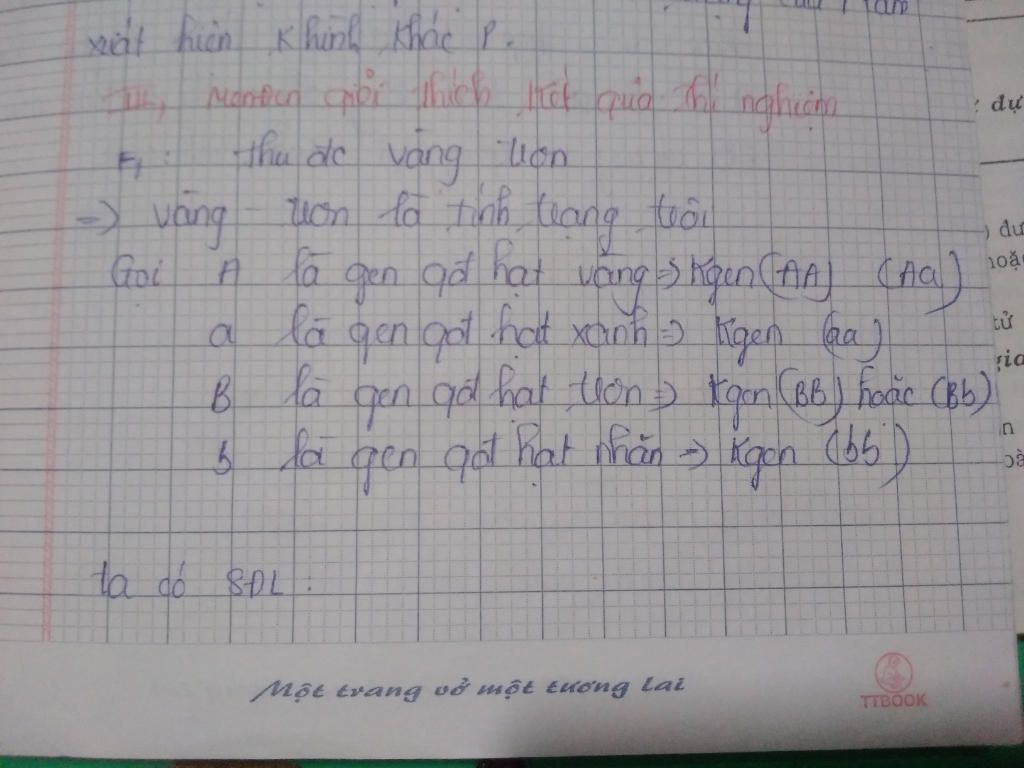 xuất hiện K hình khác P.
III, Menđen giải thích kết quả thí nghiệm
F₁: thu đc vàng trơn
=> vàng - trơn là tính trạng trội
Gọi A là gen qđ hạt vàng => Kgen (AA) (Aa)
a là gen qđ hạt xanh => Kgen (aa)
B là gen qđ hạt trơn => Kgen (BB) hoặc (Bb)
b là gen qđ hạt nhăn => Kgen (bb)
ta có SĐL:
Một trang vở một tương lai
TTBOOK
dự
dư
hoặc
tử